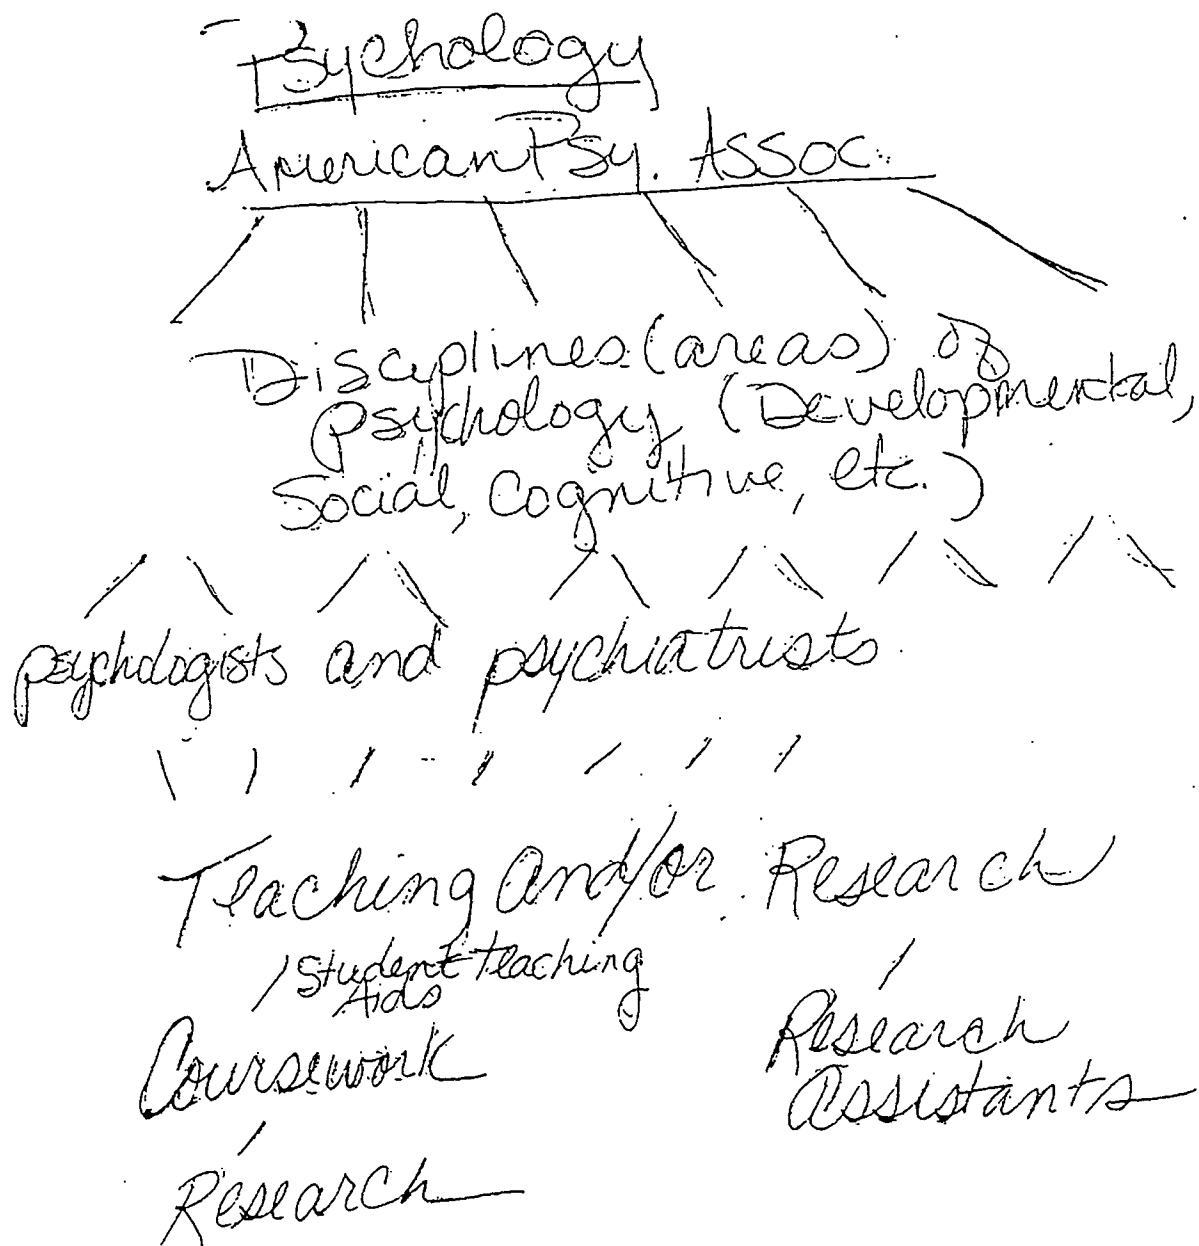 Psychology
American Psy. Assoc.
Disciplines (areas) of
psychology (Developmental,
Social, Cognitive, etc.)
psychologists and psychiatrists
Teaching and/or Research
Student teaching
Aids
Coursework
Research
Assistants
Research